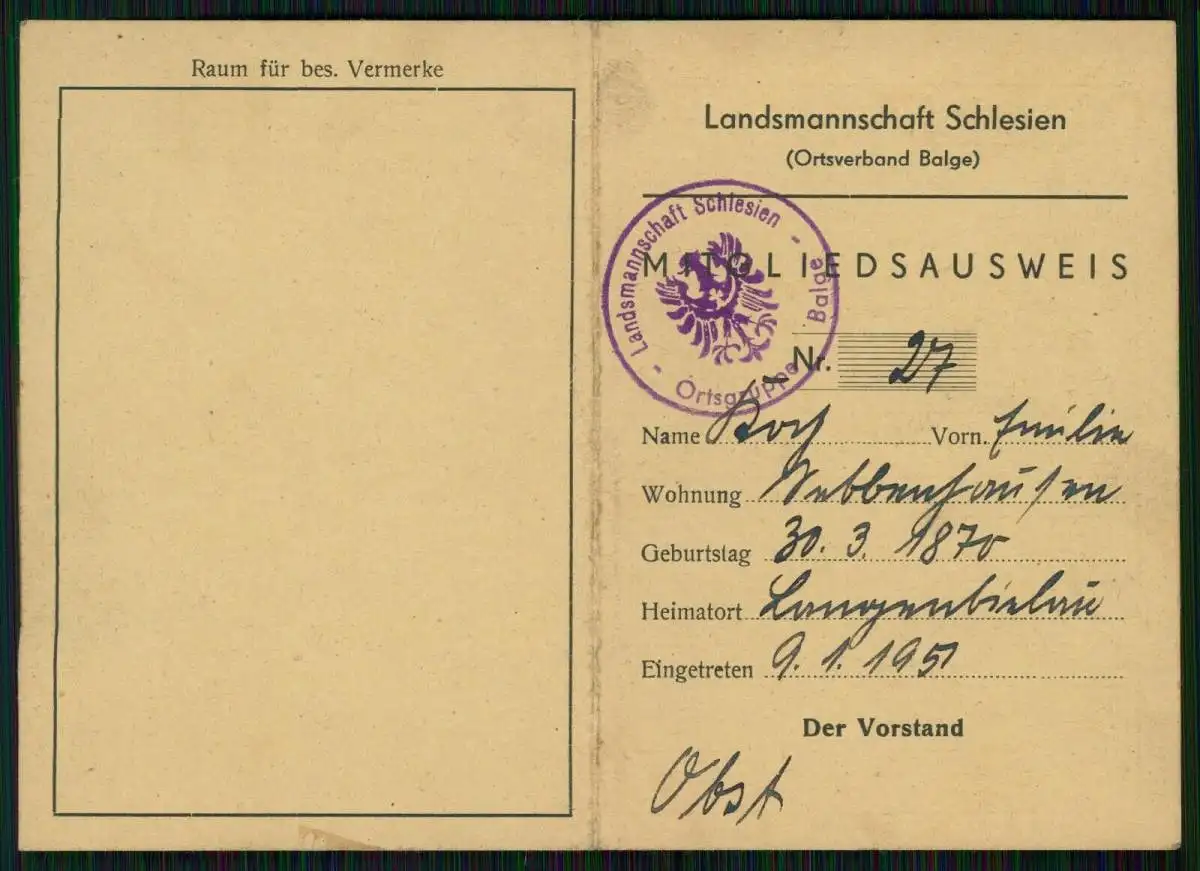 Raum für bes. Vermerke
Landsmannschaft Schlesien
(Ortsverband Balge)
MITGLIEDSAUSWEIS
Landsmannschaft Schlesien
- Ortsgruppe Balge -
Nr. 27
Name Koch Vorn. Emilie
Wohnung Sebbenhausen
Geburtstag 30. 3. 1870
Heimatort Langenbielau
Eingetreten 9. 1. 1951
Der Vorstand
Obst